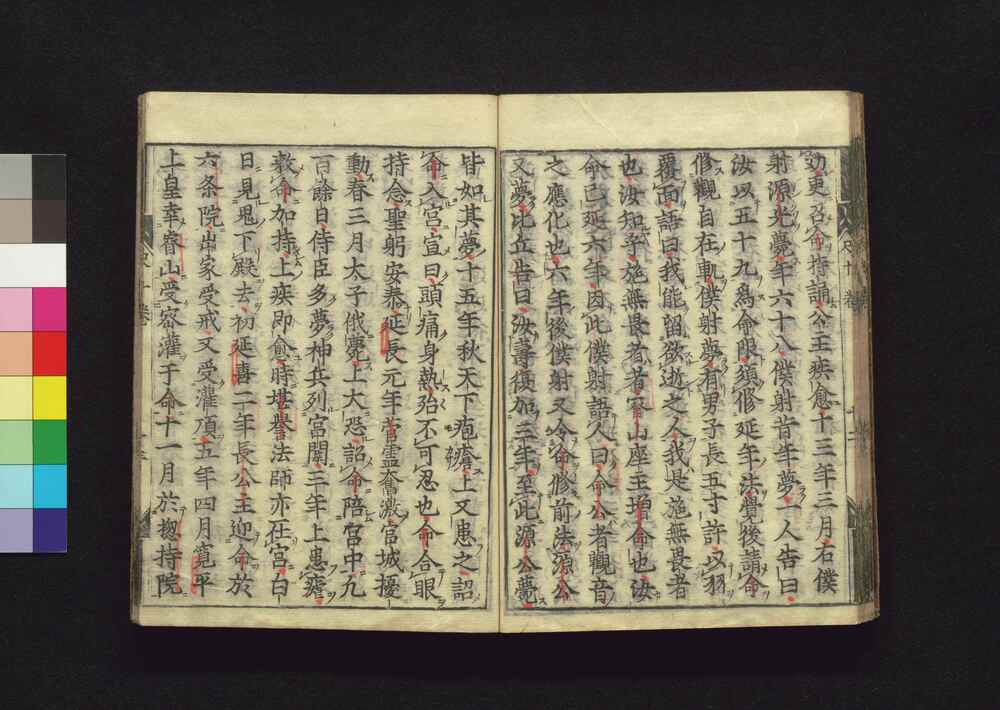 効更召命持誦公主疾愈十三年三月右僕
射源光薨年六十八僕射昔年夢一人告曰
汝以五十九為命限須修延年法覺後請命
修觀自在軌僕射夢有男子長五寸許以羽
覆面語曰我能留欲逝之人我是施無畏者
也汝知乎施無畏者睿山座主增命也汝
命已延六年因此僕射語人曰命公者觀音
之應化也六年後僕射又令命修前法源公
又夢比丘告曰汝壽復加三年至此源公薨
皆如其夢十五年秋天下疱瘡上又患之詔
命入宮宣曰頭痛身熱殆不可忍也命合眼
持念聖躬安泰延長元年菅靈奮激宮城擾
動春三月太子俄薨上大恐詔命陪宮中九
百餘日侍臣多夢神兵列宮闈三年上患瘧
敕命加持上疾即愈時堪譽法師亦在宮白
日見鬼下殿去初延喜二年長公主迎命於
六条院出家受戒又受灌頂五年四月寬平
上皇幸睿山受密灌于命十一月於惣持院